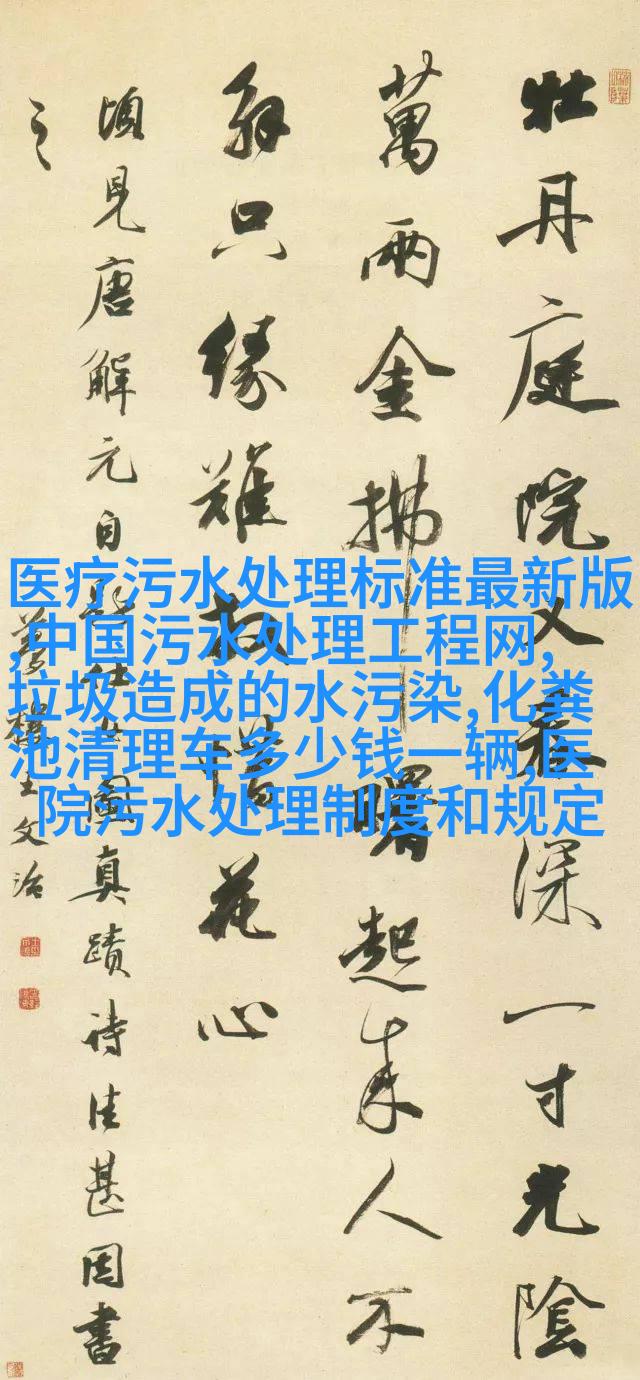 牡丹庭院又春深一寸光陰
萬兩金拂曙起来人不
解只緣難放惜花心
頃見唐解元自題仕女圖真蹟詩佳甚因書
之
夢樓王文治
医疗污水处理标准最新版
,中国污水处理工程网,
垃圾造成的水污染,化粪
池清理车多少钱一辆,医
院污水处理制度和规定